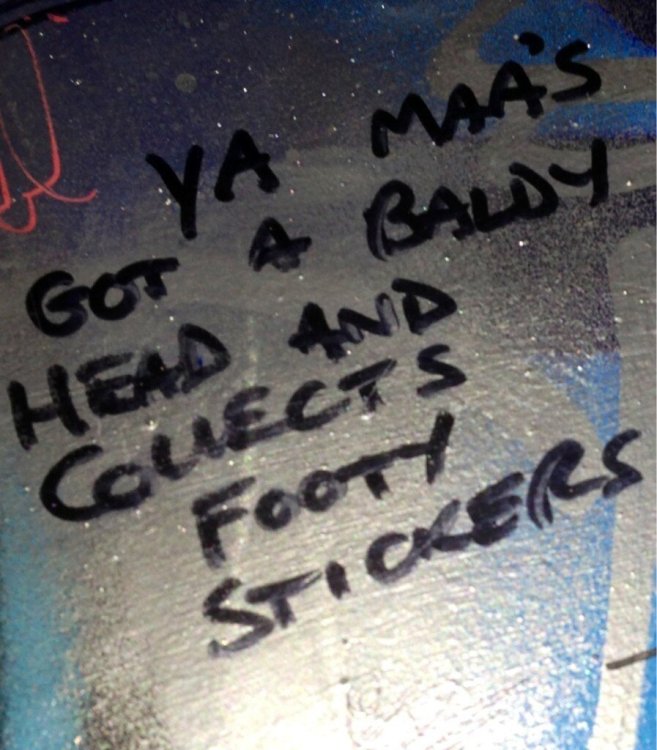 YA MAA'S
GOT A BALDY
HEAD AND
COLLECTS
FOOTY
STICKERS